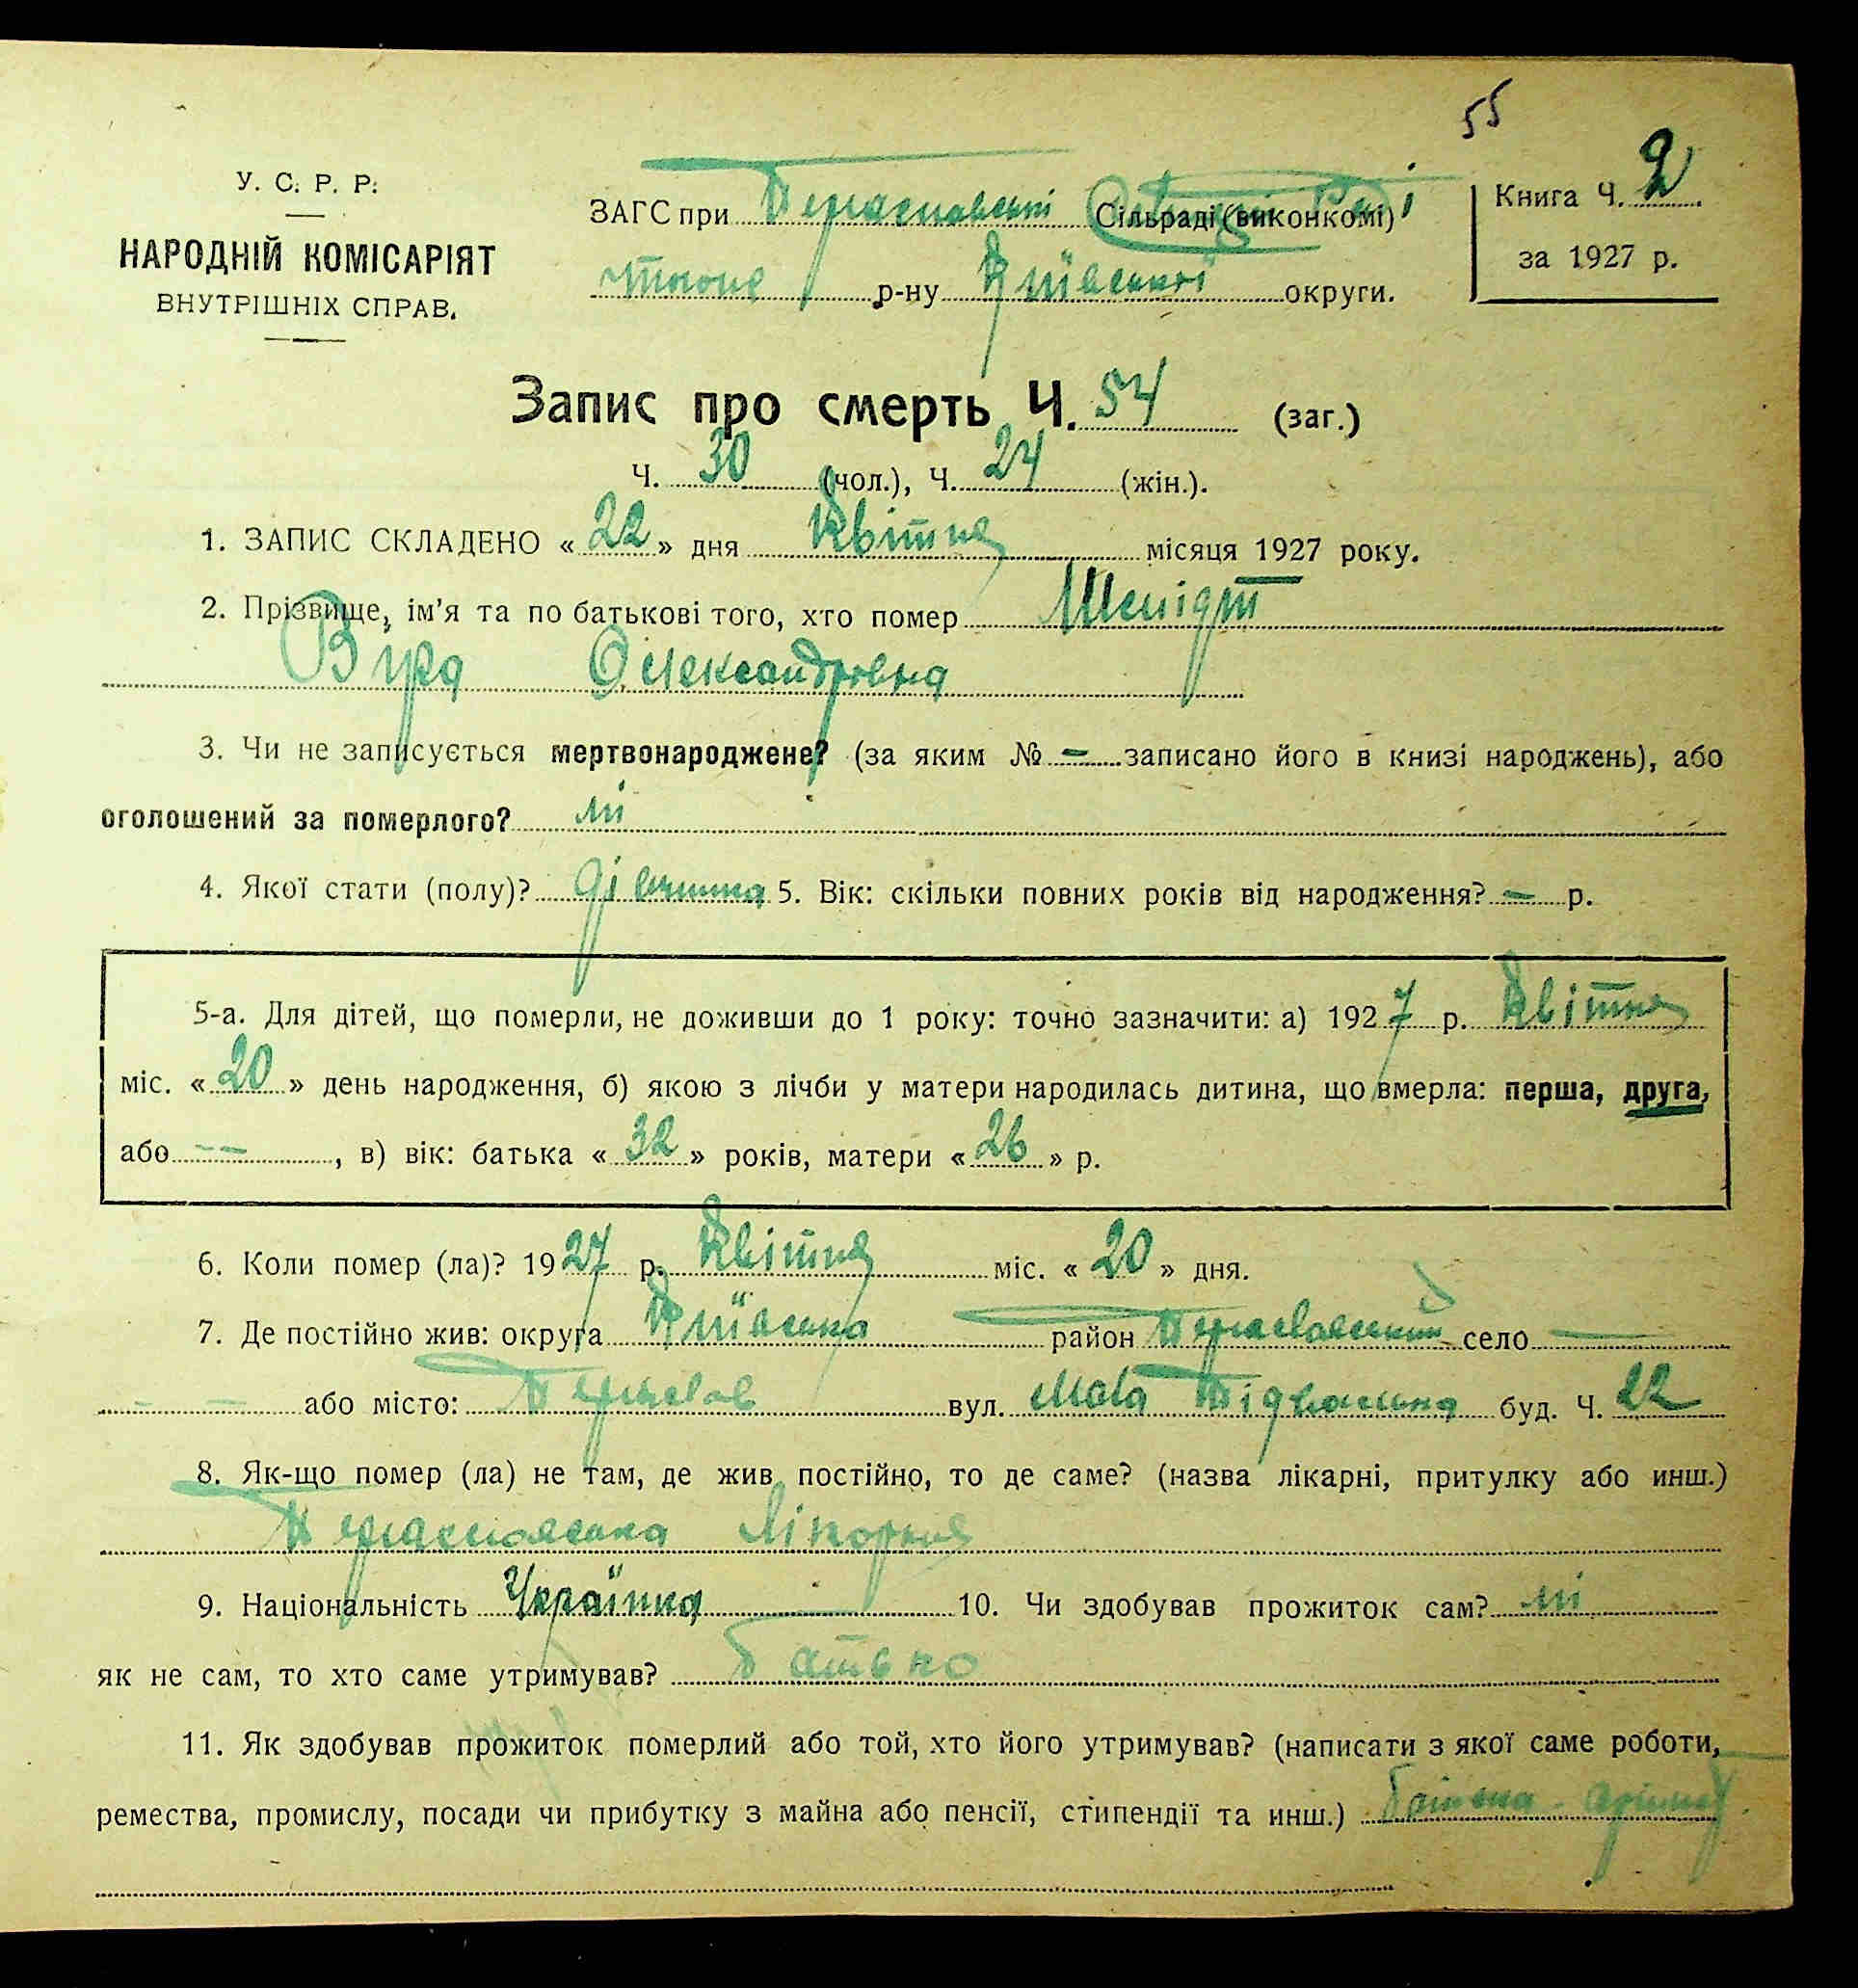 55
У. С. Р. Р.
НАРОДНІЙ КОМІСАРІЯТ
ВНУТРІШНІХ СПРАВ.
ЗАГС при Переяславській Сільраді (виконкомі)
р-ну Київської округи.
Книга Ч. 2
за 1927 р.
Запис про смерть Ч. 54 (заг.)
Ч. 30 (чол.), Ч. 24 (жін.).
1. ЗАПИС СКЛАДЕНО « 22 » дня Квітня місяця 1927 року.
2. Прізвище, ім'я та по батькові того, хто помер Шмідт
Віра Олександровна
3. Чи не записується мертвонароджене? (за яким № – записано його в книзі народжень), або
оголошений за померлого? ні
4. Якої стати (полу)? дівчина 5. Вік: скільки повних років від народження? – р.
5-а. Для дітей, що померли, не доживши до 1 року: точно зазначити: а) 1927 р. Квітня
міс. « 20 » день народження, б) якою з лічби у матери народилась дитина, що вмерла: перша, друга,
або – –, в) вік: батька « 32 » років, матери « 26 » р.
6. Коли помер (ла)? 1927 р. Квітня міс. « 20 » дня.
7. Де постійно жив: округа Київська район Переяславський село —
– – або місто: Переяслав вул. Мала Підвальна буд. Ч. 22
8. Як-що помер (ла) не там, де жив постійно, то де саме? (назва лікарні, притулку або инш.)
Переяславська Лікарня
9. Національність Українка 10. Чи здобував прожиток сам? ні
як не сам, то хто саме утримував? батько
11. Як здобував прожиток померлий або той, хто його утримував? (написати з якої саме роботи,
ремества, промислу, посади чи прибутку з майна або пенсії, стипендії та инш.)